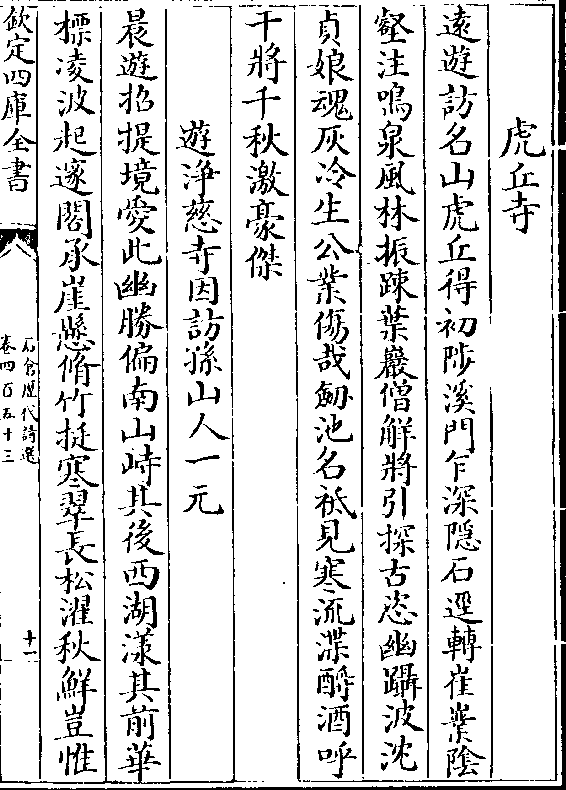 虎丘寺
遠遊訪名山虎丘得初陟溪門乍深隱石逕轉崔嶪陰
壑注鳴泉風林振踈葉巖僧解將引探古恣幽躡波沈
貞娘魂灰冷生公業傷哉劒池名祗見寒流渫酹酒呼
干將千秋激豪傑
遊淨慈寺因訪孫山人一元
晨遊招提境愛此幽勝偏南山峙其後西湖漾其前華
標凌波起邃閣承崖懸脩竹挺寒翠長松濯秋鮮豈惟
欽定四庫全書
石倉歷代詩選
卷四百五十三
十一